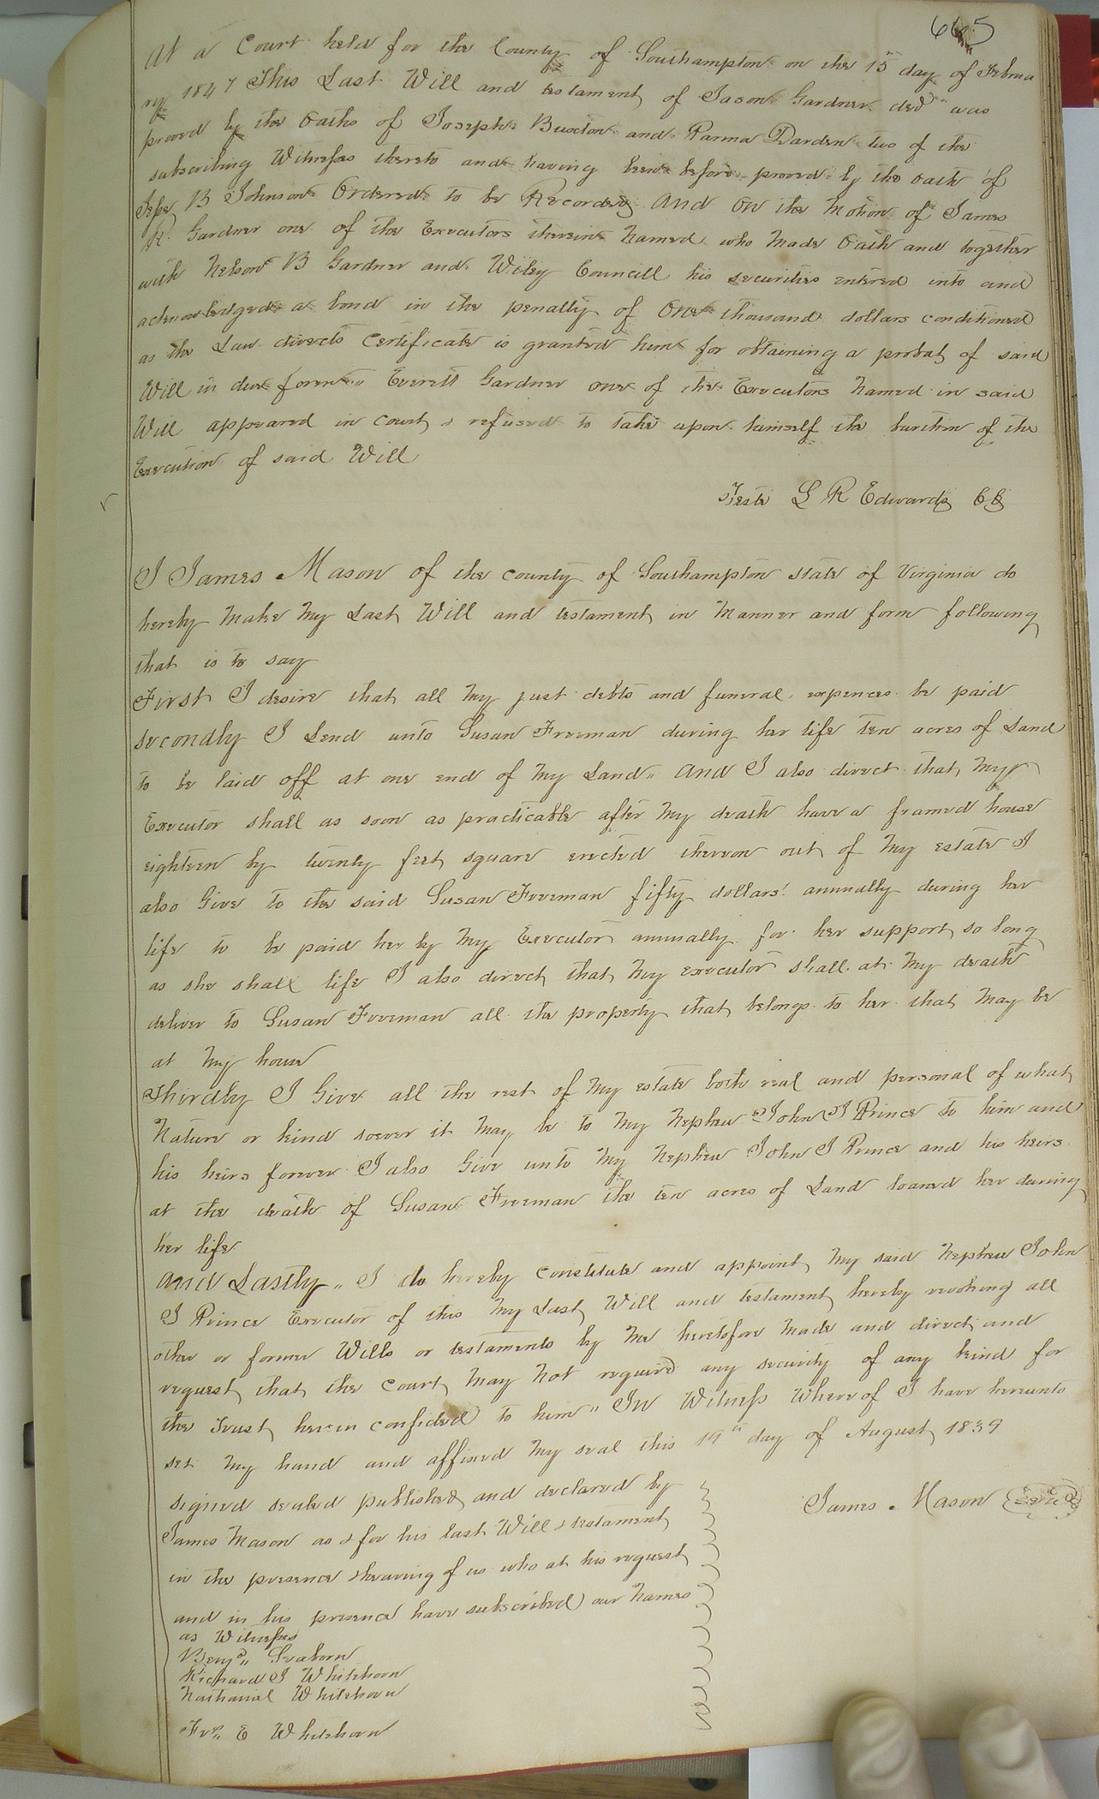 665
At a Court held for the County of Southampton on the 15th day of Februa
ry 1847 This Last Will and testament of Jason Gardner decd was
proved by the Oaths of Joseph Buxton and Parma Darden two of the
subscribing Witnesses thereto and having been before proved by the oath of
Jesse B Johnson Ordered to be Recorded And On the Motion of James
R. Gardner one of the Executors therein Named who Made Oath and together
with Nelson B Gardner and Wiley Councill his securities entered into and
acknowledged a bond in the penalty of One thousand dollars conditioned
as the Law directs Certificate is granted him for obtaining a probat of said
Will in due form Everett Gardner one of the Executors Named in said
Will appeared in Court & refused to take upon himself the burthen of the
Execution of said Will
Teste L R Edwards CC
I James Mason of the county of Southampton state of Virginia do
hereby Make My Last Will and testament in Manner and form following
that is to say
First I desire that all My just debts and funeral expences be paid
Secondly I Lend unto Susan Freeman during her life ten acres of Land
to be laid off at one end of My Land And I also direct that My
Executor shall as soon as practicable after My death have a framed house
eighteen by twenty feet square erected thereon out of My estate I
also Give to the said Susan Freeman fifty dollars annually during her
life to be paid her by My Executor annually for her support so long
as she shall life I also direct that My executor shall at My death
deliver to Susan Freeman all the property that belongs to her that May be
at My house
Thirdly I Give all the rest of My estate both real and personal of what
Nature or kind soever it May be to My Nephew John J Prince to him and
his heirs forever I also Give unto My Nephew John J Prince and his heirs
at the death of Susan Freeman the ten acres of Land loaned her during
her life
And Lastly I do hereby constitute and appoint My said Nephew John
J Prince Executor of this My Last Will and testament hereby revoking all
other or former Wills or testaments by Me heretofore Made and direct and
request that the Court May Not require any security of any kind for
the Trust herein confided to him In Witness Whereof I have hereunto
set My hand and affixed My seal this 19th day of August 1839
signed sealed published and declared by
James Mason as & for his last Will & testament
in the presence & hearing of us who at his request
and in his presence have subscribed our Names
as Witnesses
James Mason Seal
Benjn Seaborn
Richard J Whitehorn
Nathaniel Whitehorn
E Whitehorn